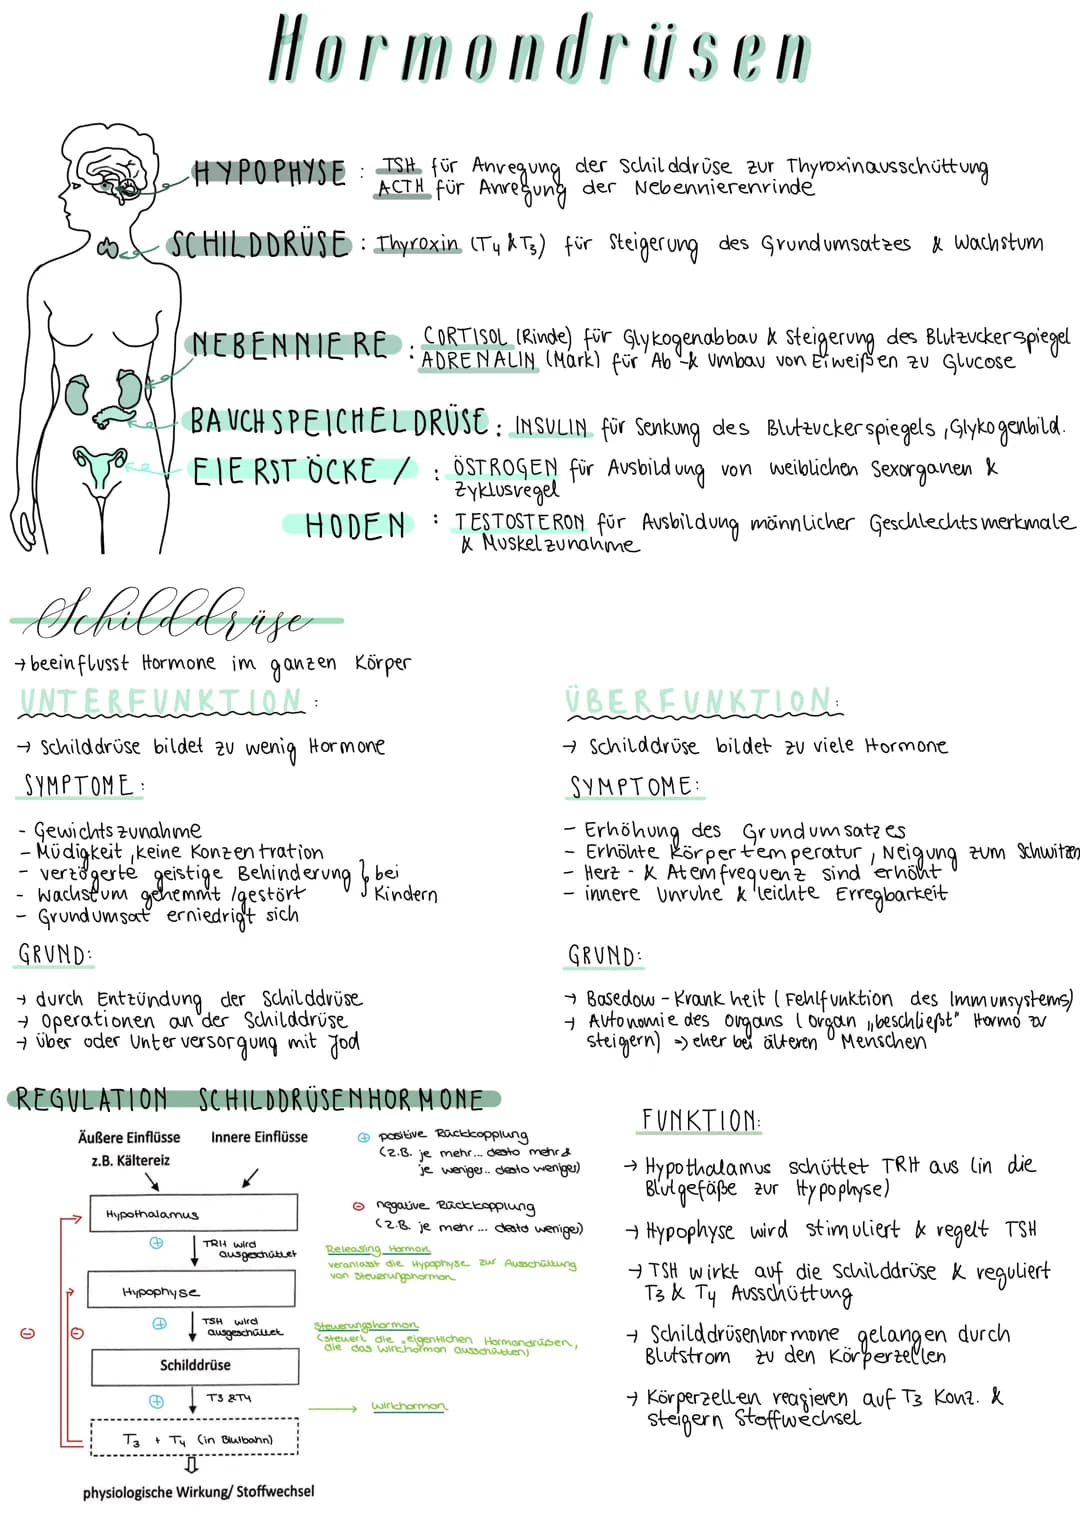 Hormondrüsen
HYPOPHYSE : TSH für Anregung der Schilddrüse zur Thyroxinausschüttung
ACTH für Anregung der Nebennierenrinde
SCHILDDRÜSE : Thyroxin (T4 & T3) für Steigerung des Grundumsatzes & Wachstum
NEBENNIERE : CORTISOL (Rinde) für Glykogenabbau & Steigerung des Blutzuckerspiegel
ADRENALIN (Mark) für Ab-& Umbau von Eiweißen zu Glucose
BAUCHSPEICHELDRÜSE : INSULIN für Senkung des Blutzuckerspiegels, Glykogenbild.
EIERSTÖCKE / : ÖSTROGEN für Ausbildung von weiblichen Sexorganen &
Zyklusregel
HODEN : TESTOSTERON für Ausbildung männlicher Geschlechtsmerkmale
& Muskelzunahme
Schilddrüse
→ beeinflusst Hormone im ganzen Körper
UNTERFUNKTION :
→ Schilddrüse bildet zu wenig Hormone
SYMPTOME :
- Gewichtszunahme
- Müdigkeit, keine Konzentration
- verzögerte geistige Behinderung } bei
- Wachstum gehemmt /gestört } Kindern
- Grundumsat erniedrigt sich
GRUND:
→ durch Entzündung der Schilddrüse
→ Operationen an der Schilddrüse
→ über oder Unterversorgung mit Jod
ÜBERFUNKTION:
→ Schilddrüse bildet zu viele Hormone
SYMPTOME:
- Erhöhung des Grundumsatzes
- Erhöhte Körpertemperatur, Neigung zum Schwitzen
- Herz- & Atemfrequenz sind erhöht
- innere Unruhe & leichte Erregbarkeit
GRUND:
→ Basedow-Krankheit (Fehlfunktion des Immunsystems)
→ Autonomie des Organs (Organ „beschließt" Hormo zu
steigern) => eher bei älteren Menschen
REGULATION SCHILDDRÜSENHORMONE
Äußere Einflüsse Innere Einflüsse
z.B. Kältereiz
Hypothalamus
⊕ TRH wird
ausgeschüttet
Hypophyse
⊖ ⊖
⊕ TSH wird
ausgeschüttet
Schilddrüse
⊕ T3 & T4
T3 + T4 (in Blutbahn)
physiologische Wirkung/ Stoffwechsel
⊕ positive Rückkopplung
(z.B. je mehr... desto mehr &
je weniger.. desto weniger)
⊖ negative Rückkopplung
(z.B. je mehr ... desto weniger)
Releasing Hormon
veranlasst die Hypophyse zur Ausschüttung
von Steuerungshormon
Steuerungshormon
(steuert die „eigentlichen Hormondrüsen,
die das Wirkhormon ausschütten)
→ Wirkhormon
FUNKTION:
→ Hypothalamus schüttet TRH aus (in die
Blutgefäße zur Hypophyse)
→ Hypophyse wird stimuliert & regelt TSH
→ TSH wirkt auf die Schilddrüse & reguliert
T3 & T4 Ausschüttung
→ Schilddrüsenhormone gelangen durch
Blutstrom zu den Körperzellen
→ Körperzellen reagieren auf T3 Konz. &
steigern Stoffwechsel